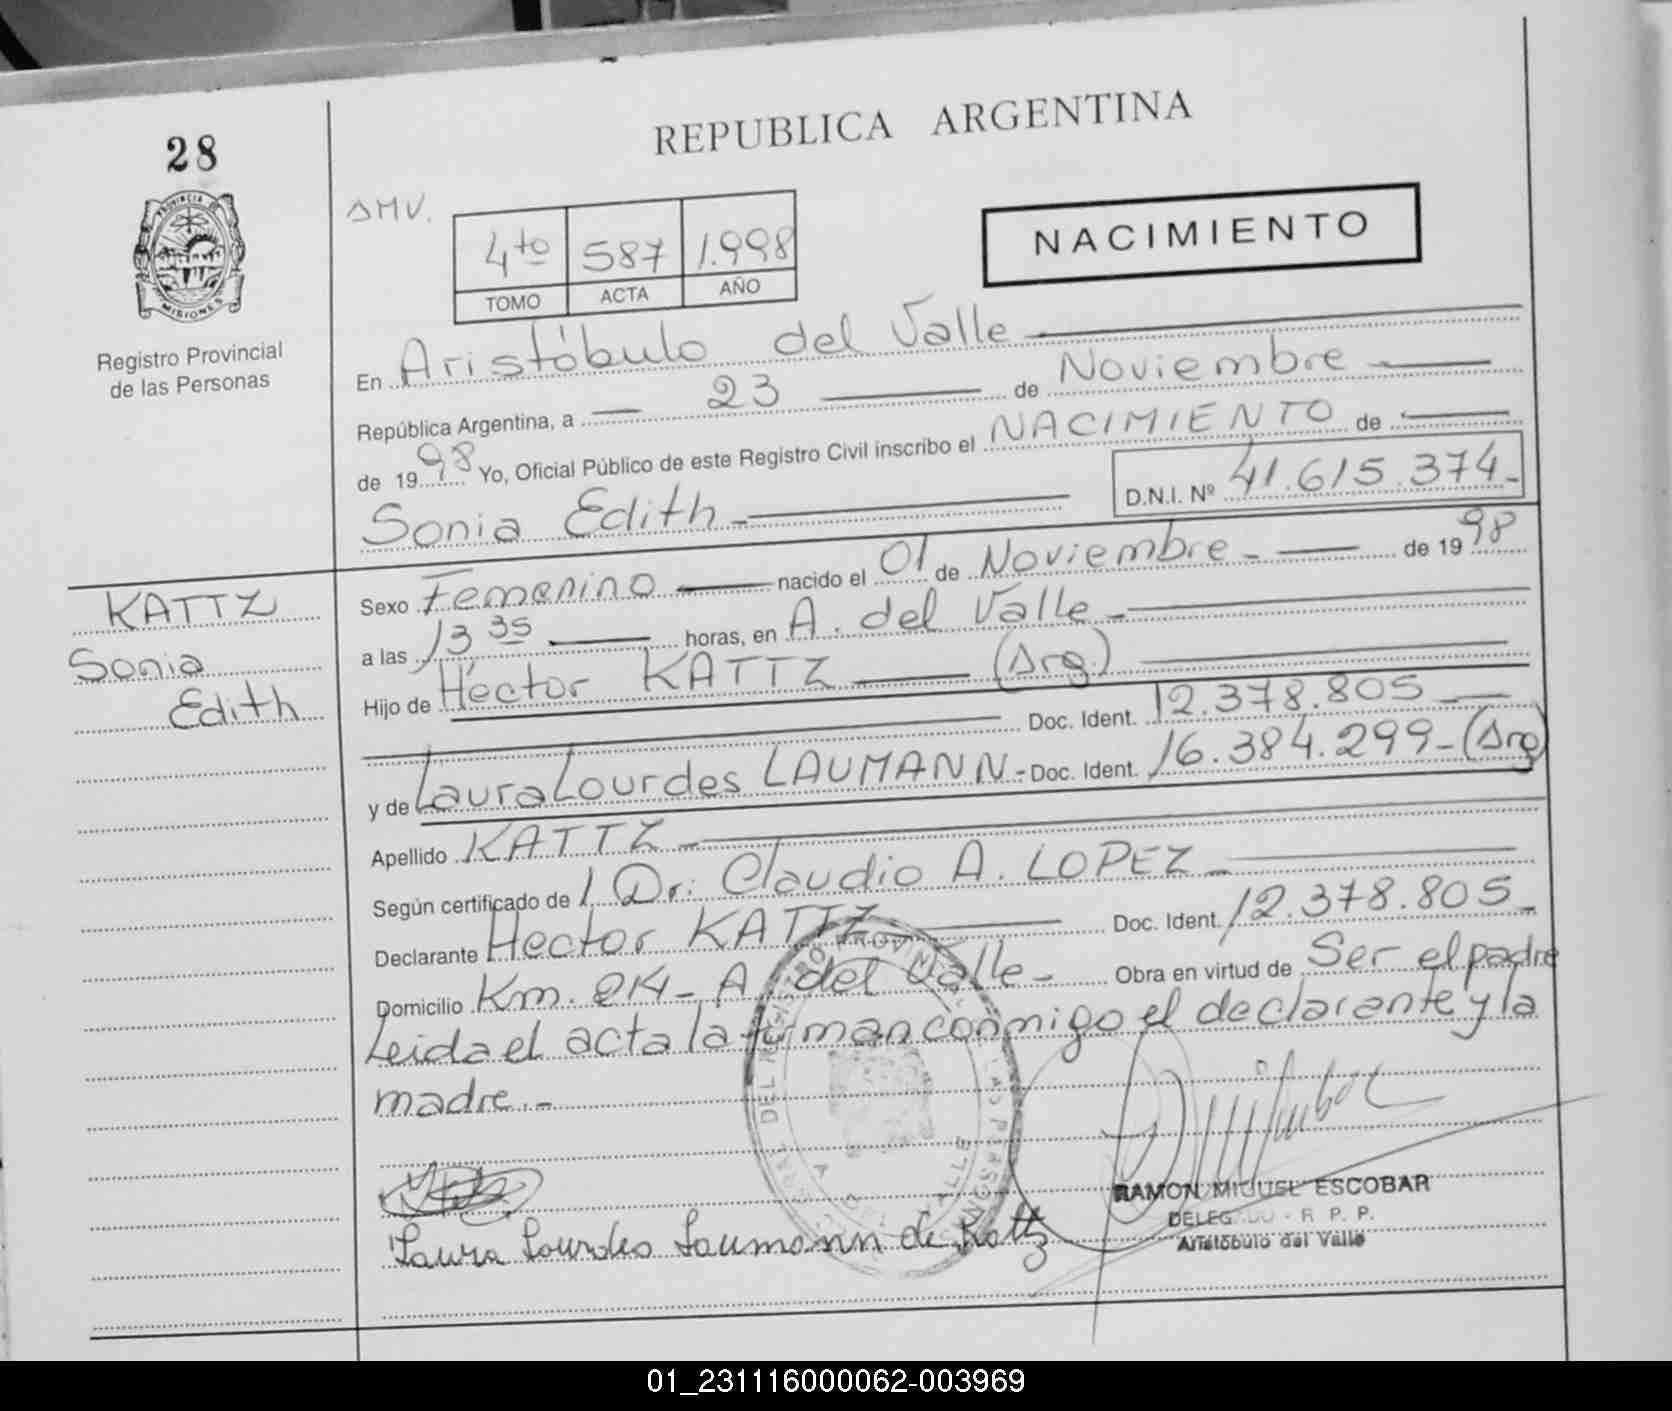 28
PROVINCIA DE
MISIONES
Registro Provincial
de las Personas
REPUBLICA ARGENTINA
AMV.
4to 587 1.998
TOMO ACTA AÑO
NACIMIENTO
En Aristóbulo del Valle
República Argentina, a 23 de Noviembre
de 1998 Yo, Oficial Público de este Registro Civil inscribo el NACIMIENTO de
Sonia Edith D.N.I. Nº 41.615.374
Sexo Femenino nacido el 01 de Noviembre de 1998
a las 13 35 horas, en A. del Valle
Hijo de Héctor KATTZ (Arg.)
Doc. Ident. 12.378.805
y de Laura Lourdes LAUMANN Doc. Ident. 16.384.299 (Arg)
Apellido KATTZ
Según certificado de Dr: Claudio A. LOPEZ
Declarante Hector KATTZ Doc. Ident. 12.378.805
Domicilio Km. 214 - A. del Valle Obra en virtud de Ser el padre
Leida el acta la firman conmigo el declarante y la
madre.-
Laura Lourdes Laumann de Kattz
RAMON MIGUEL ESCOBAR
DELEGADO - R. P. P.
Aristóbulo del Valle
KATTZ
Sonia
Edith
01_231116000062-003969